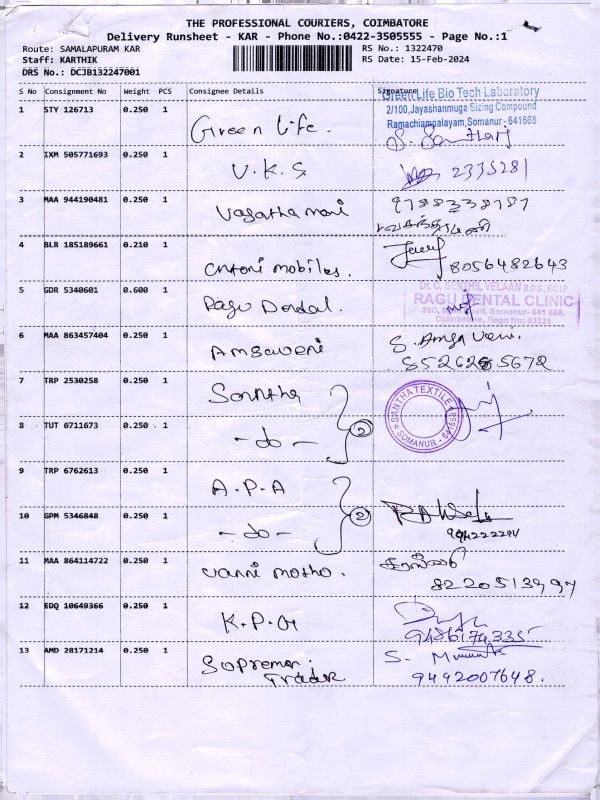 THE PROFESSIONAL COURIERS, COIMBATORE
Delivery Runsheet - KAR - Phone No.:0422-3505555 - Page No.:1
Route: SAMALAPURAM KAR
RS No.: 1322470
Staff: KARTHIK
RS Date: 15-Feb-2024
DRS No.: DCJB132247001
S No Consignment No Weight PCS Consignee Details Signature
Green Life Bio Tech Laboratory
2/100, Jayashanmuga Sizing Compound
Ramachiampalayam, Somanur - 641668
1 STY 126713 0.250 1 Green life.
2 IXM 505771693 0.250 1 V.K.S 2335281
3 MAA 944190481 0.250 1 Vasantha mani 9788338187
4 BLR 185189661 0.210 1 mobiles. 8056482643
5 GDR 5340601 0.600 1 Ragu Dendal.
Dr. C. SENTHIL VELAAN B.D.S., F.C.I.P
RAGU DENTAL CLINIC
39C, Main Road, Somanur - 641 668.
Coimbatore, Regn No: 03331
6 MAA 863457404 0.250 1 Amsaveni S. Amsaveni.
7 TRP 2530258 0.250 1 Santha
SANTHA TEXTILE
SOMANUR - 641668
8 TUT 6711673 0.250 1 -do- 2
9 TRP 6762613 0.250 1 A.P.A
10 GPM 5346848 0.250 1 -do- 2
11 MAA 864114722 0.250 1 Vanni motho.
12 EDQ 10649366 0.250 1 K.P.G
9486174335
13 AMD 28171214 0.250 1 Supreme S.
Trader 9492007648.